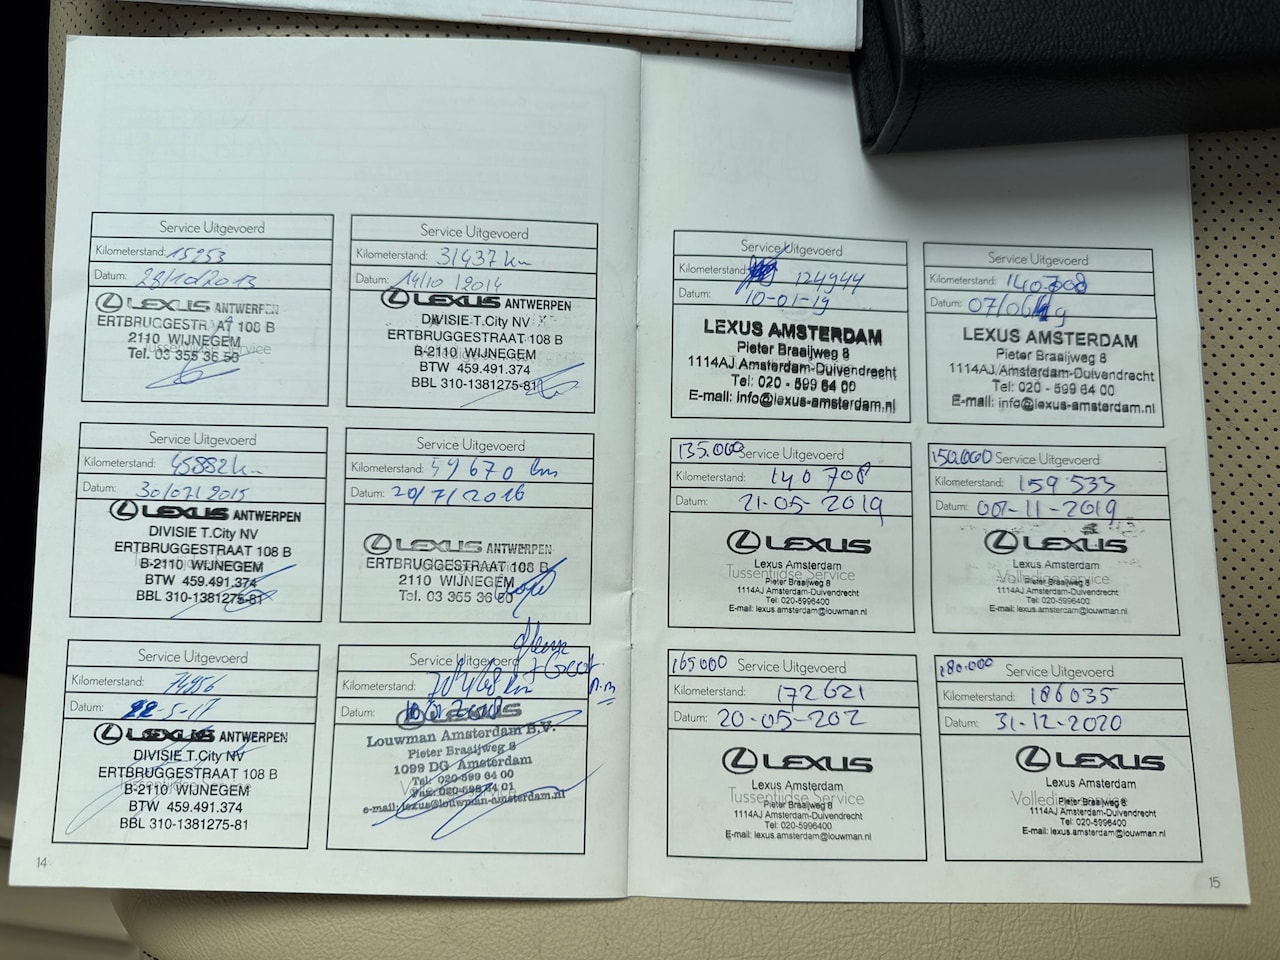 Service Uitgevoerd
Kilometerstand: 15253
Datum: 28/10/2013
LEXUS ANTWERPEN
ERTBRUGGESTRAAT 108 B
2110 WIJNEGEM
Tel. 03 355 36 50
Service Uitgevoerd
Kilometerstand: 31437 km
Datum: 14/10/2014
LEXUS ANTWERPEN
DIVISIE T.City NV
ERTBRUGGESTRAAT 108 B
B-2110 WIJNEGEM
BTW 459.491.374
BBL 310-1381275-81
Service Uitgevoerd
Kilometerstand: 45882 km
Datum: 30/07/2015
LEXUS ANTWERPEN
DIVISIE T.City NV
ERTBRUGGESTRAAT 108 B
B-2110 WIJNEGEM
BTW 459.491.374
BBL 310-1381275-81
Service Uitgevoerd
Kilometerstand: 59670 km
Datum: 20/7/2016
LEXUS ANTWERPEN
ERTBRUGGESTRAAT 108 B
2110 WIJNEGEM
Tel. 03 355 36 50
Service Uitgevoerd
Kilometerstand: 74956
Datum: 22-5-17
LEXUS ANTWERPEN
DIVISIE T.City NV
ERTBRUGGESTRAAT 108 B
B-2110 WIJNEGEM
BTW 459.491.374
BBL 310-1381275-81
Service Uitgevoerd
Kilometerstand:
Datum:
LEXUS
Louwman Amsterdam B.V.
Pieter Braaijweg 8
1099 DG Amsterdam
Tel: 020-599 64 00
Fax: 020-599 64 01
e-mail: lexus@louwman-amsterdam.nl
14
Service Uitgevoerd
Kilometerstand: 124944
Datum: 10-01-19
LEXUS AMSTERDAM
Pieter Braaijweg 8
1114AJ Amsterdam-Duivendrecht
Tel: 020 - 599 64 00
E-mail: info@lexus-amsterdam.nl
Service Uitgevoerd
Kilometerstand: 140708
Datum: 07/06/19
LEXUS AMSTERDAM
Pieter Braaijweg 8
1114AJ Amsterdam-Duivendrecht
Tel: 020 - 599 64 00
E-mail: info@lexus-amsterdam.nl
135.000 Service Uitgevoerd
Kilometerstand: 140 708
Datum: 21-05-2019
LEXUS
Lexus Amsterdam
Tussentijdse Service
Pieter Braaijweg 8
1114AJ Amsterdam-Duivendrecht
Tel: 020-5996400
E-mail: lexus.amsterdam@louwman.nl
150.000 Service Uitgevoerd
Kilometerstand: 159 533
Datum: 007-11-2019
LEXUS
Lexus Amsterdam
Volledige service
Pieter Braaijweg 8
1114AJ Amsterdam-Duivendrecht
Tel: 020-5996400
E-mail: lexus.amsterdam@louwman.nl
165000 Service Uitgevoerd
Kilometerstand: 172621
Datum: 20-05-202
LEXUS
Lexus Amsterdam
Tussentijdse Service
Pieter Braaijweg 8
1114AJ Amsterdam-Duivendrecht
Tel: 020-5996400
E-mail: lexus.amsterdam@louwman.nl
180.000 Service Uitgevoerd
Kilometerstand: 186035
Datum: 31-12-2020
LEXUS
Lexus Amsterdam
Pieter Braaijweg 8
1114AJ Amsterdam-Duivendrecht
Tel: 020-5996400
E-mail: lexus.amsterdam@louwman.nl
15